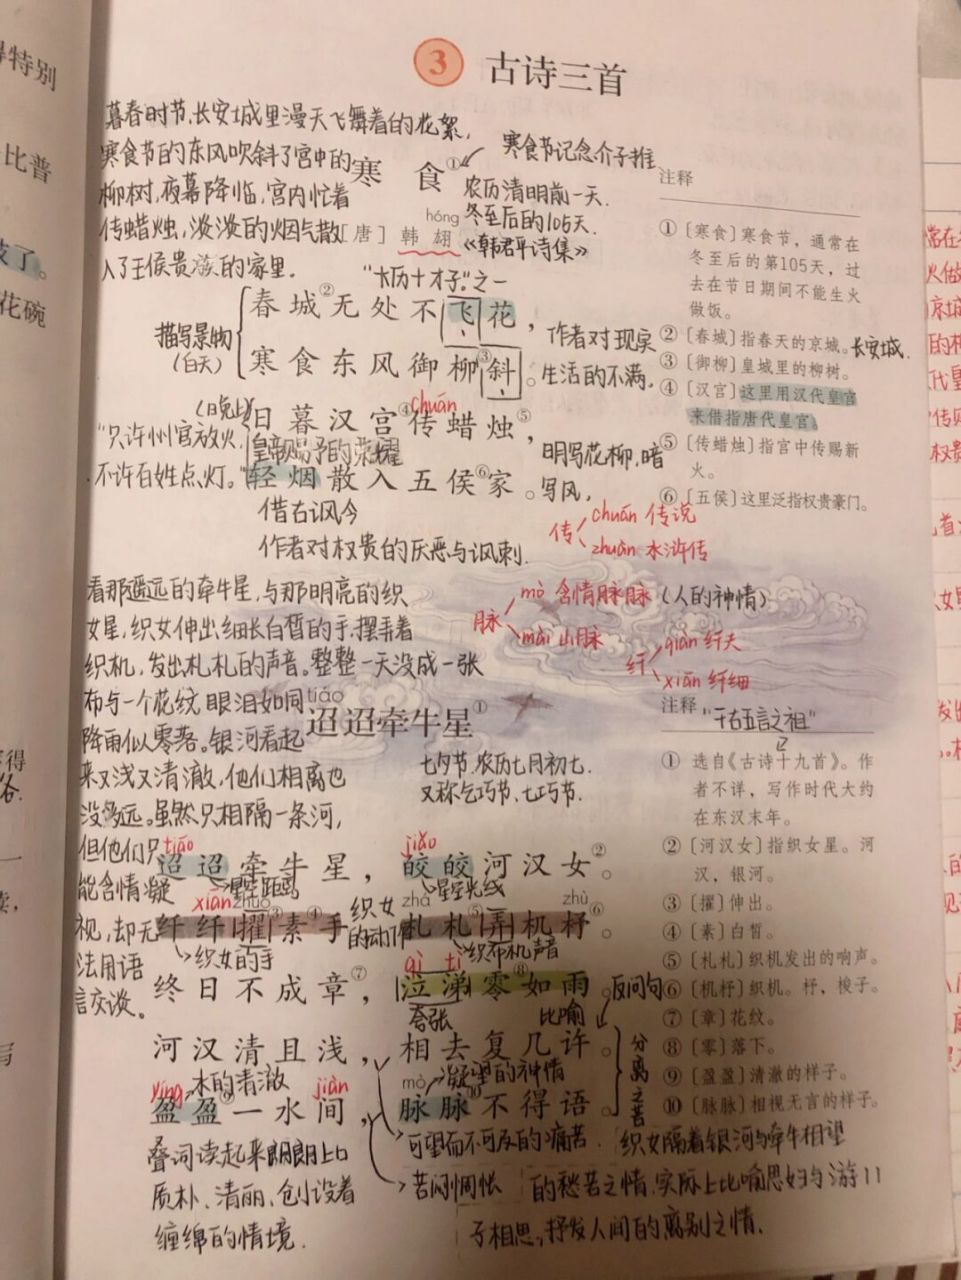 得特别
比普
了。
花碗
3 古诗三首
暮春时节,长安城里漫天飞舞着的花絮,
寒食节的东风吹斜了宫中的
柳树,夜幕降临,宫内忙着
传蜡烛,淡淡的烟气散
入了王侯贵族的家里.
寒食①
寒食节记念介子推
农历清明前一天.
冬至后的105天.
hóng
[唐] 韩翃
《韩君平诗集》
"大历十才子"之一
春城②无处不飞花,
寒食东风御柳③斜。
描写景物
(白天)
作者对现实
生活的不满,
(晚上)
chuán
日暮汉宫④传蜡烛⑤,
皇帝赐予的荣耀
轻烟散入五侯⑥家。
"只许州官放火,
不许百姓点灯。"
明写花柳,暗
写风,
借古讽今
作者对权贵的厌恶与讽刺.
注释
①〔寒食〕寒食节,通常在
冬至后的第105天,过
去在节日期间不能生火
做饭。
②〔春城〕指春天的京城。长安城.
③〔御柳〕皇城里的柳树。
④〔汉宫〕这里用汉代皇宫
来借指唐代皇宫。
⑤〔传蜡烛〕指宫中传赐新
火。
⑥〔五侯〕这里泛指权贵豪门。
传
chuán 传说
zhuàn 水浒传
脉
mò 含情脉脉(人的神情)
mài 山脉
纤
qiàn 纤夫
xiān 纤细
看那遥远的牵牛星,与那明亮的织
女星,织女伸出细长白皙的手,摆弄着
织机,发出札札的声音。整整一天没成一张
布与一个花纹,眼泪如同
降雨似人零落。银河看起
来又浅又清澈,他们相离也
没多远。虽然只相隔一条河,
但他们只
能含情凝
视,却无
法用语
言交谈。
tiáo
迢迢牵牛星①
七夕节.农历七月初七.
又称乞巧节、七巧节.
tiáo
jiǎo
迢迢牵牛星,皎皎河汉女②。
星空距离
星空光线
xiān zhuó
zhá
zhù
纤纤擢③素④手,札札⑤弄机杼⑥。
织女
的动作
织女的手
织布机声音
qì tì
终日不成章⑦,泣涕零⑧如雨。
夸张
比喻
反问句
河汉清且浅,相去复几许。
水的清澈
凝望的神情
yíng
jiàn
mò
盈盈⑨一水间,脉脉⑩不得语。
分离之苦
叠词读起来朗朗上口
质朴、清丽,创设着
缠绵的情境.
可望而不可及的痛苦.
苦闷惆怅
织女隔着银河与牵牛相望
的愁苦之情.实际上比喻思妇与游
子相思,抒发人间的离别之情.
注释
"千古五言之祖"
①选自《古诗十九首》。作
者不详,写作时代大约
在东汉末年。
②〔河汉女〕指织女星。河
汉,银河。
③〔擢〕伸出。
④〔素〕白皙。
⑤〔札札〕织机发出的响声。
⑥〔机杼〕织机。杼,梭子。
⑦〔章〕花纹。
⑧〔零〕落下。
⑨〔盈盈〕清澈的样子。
⑩〔脉脉〕相视无言的样子。